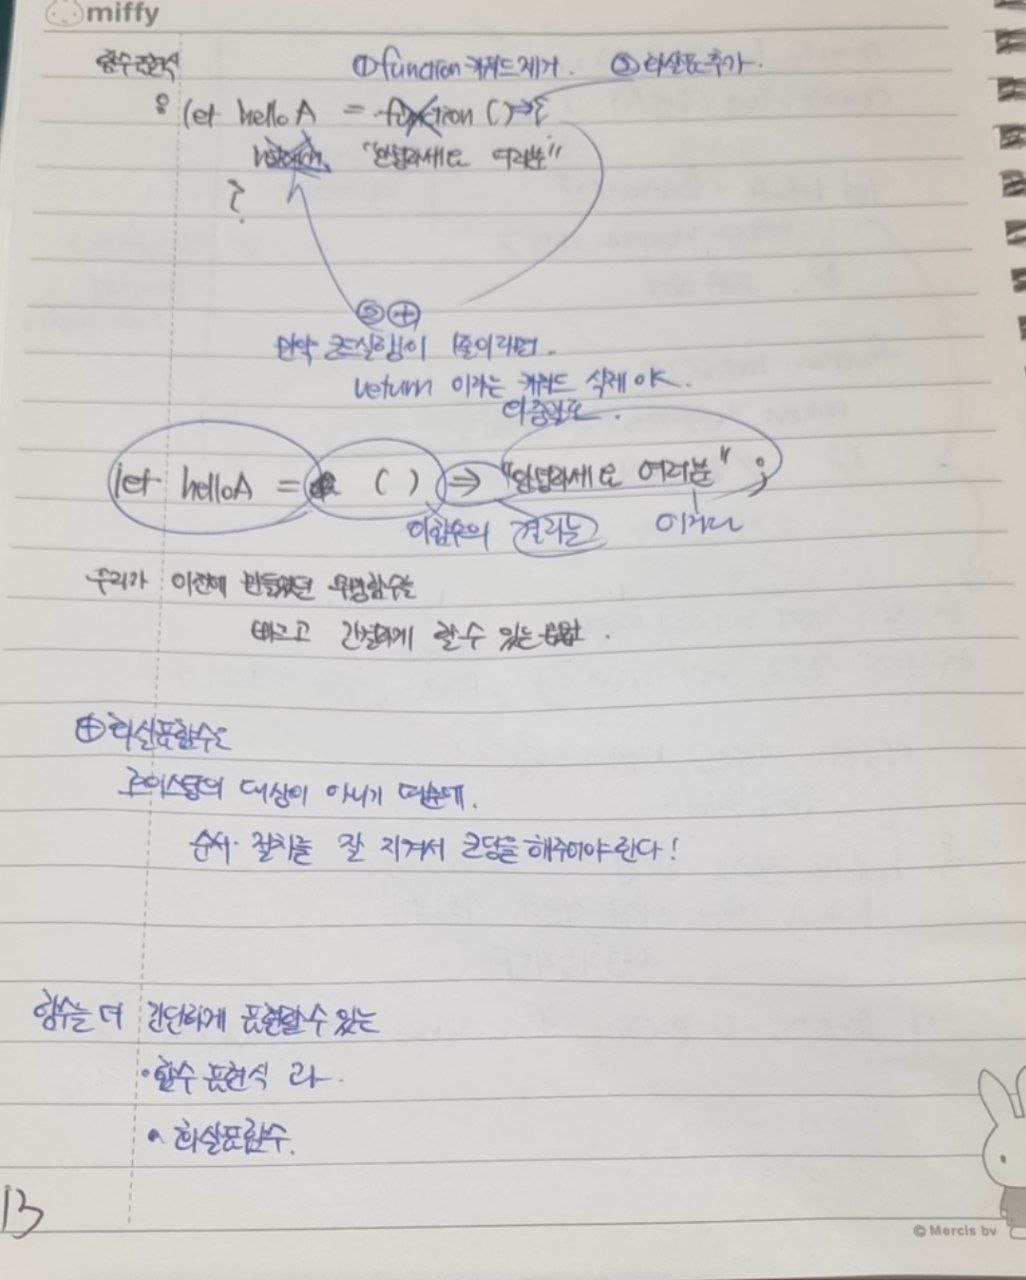 miffy
함수표현식
① function 키워드 제거. ② 화살표 추가.
: let helloA = function () ⇒ {
return "안녕하세요 여러분"
}
③ ④
만약 코드실행이 1줄이라면.
return 이라는 키워드 삭제 이후
중괄호
let helloA = () ⇒ "안녕하세요 여러분" ;
이함수의 결과는 이거다
우리가 이전에 만들었던 무명함수를
빠르고 간결하게 할 수 있는 방법.
⊕ 화살표함수도
호이스팅의 대상이 아니기 때문에.
순서·절차를 잘 지켜서 코딩을 해주어야한다!
함수를 더 간단하게 표현할 수 있는
· 함수 표현식 과.
· 화살표함수.
13
© Mercis bv